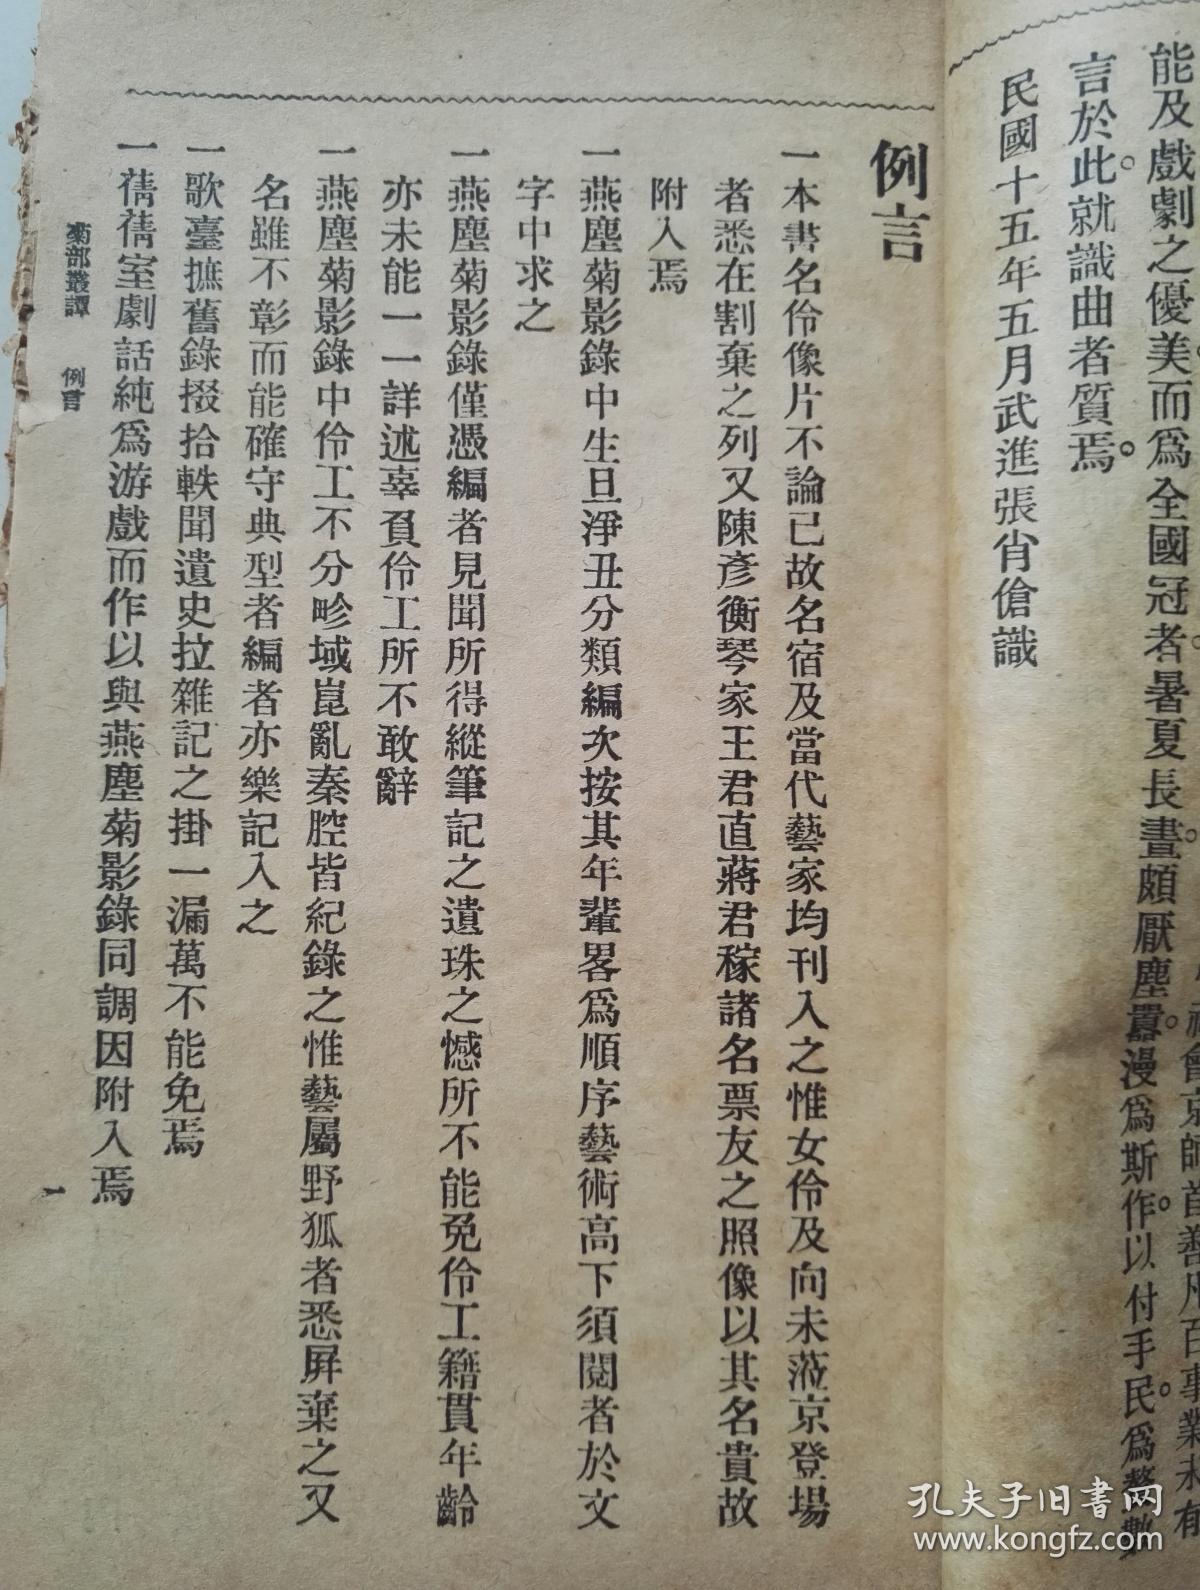 能及戲劇之優美而爲全國冠者暑夏長晝頗厭塵囂漫爲斯作以付手民爲
言於此就識曲者質焉
民國十五年五月武進張肖傖識
例言
一本書名伶像片不論已故名宿及當代藝家均刊入之惟女伶及向未蒞京登場
者悉在割棄之列又陳彥衡琴家王君直蔣君稼諸名票友之照像以其名貴故
附入焉
一燕塵菊影錄中生旦淨丑分類編次按其年輩畧爲順序藝術高下須閱者於文
字中求之
一燕塵菊影錄僅憑編者見聞所得縱筆記之遺珠之憾所不能免伶工籍貫年齡
亦未能一一詳述辜負伶工所不敢辭
一燕塵菊影錄中伶工不分畛域崑亂秦腔皆紀錄之惟藝屬野狐者悉屏棄之又
名雖不彰而能確守典型者編者亦樂記入之
一歌臺摭舊錄掇拾軼聞遺史拉雜記之掛一漏萬不能免焉
一蒨蒨室劇話純爲游戲而作以與燕塵菊影錄同調因附入焉
菊部叢譚 例言
一
孔夫子旧书网
www.kongfz.com